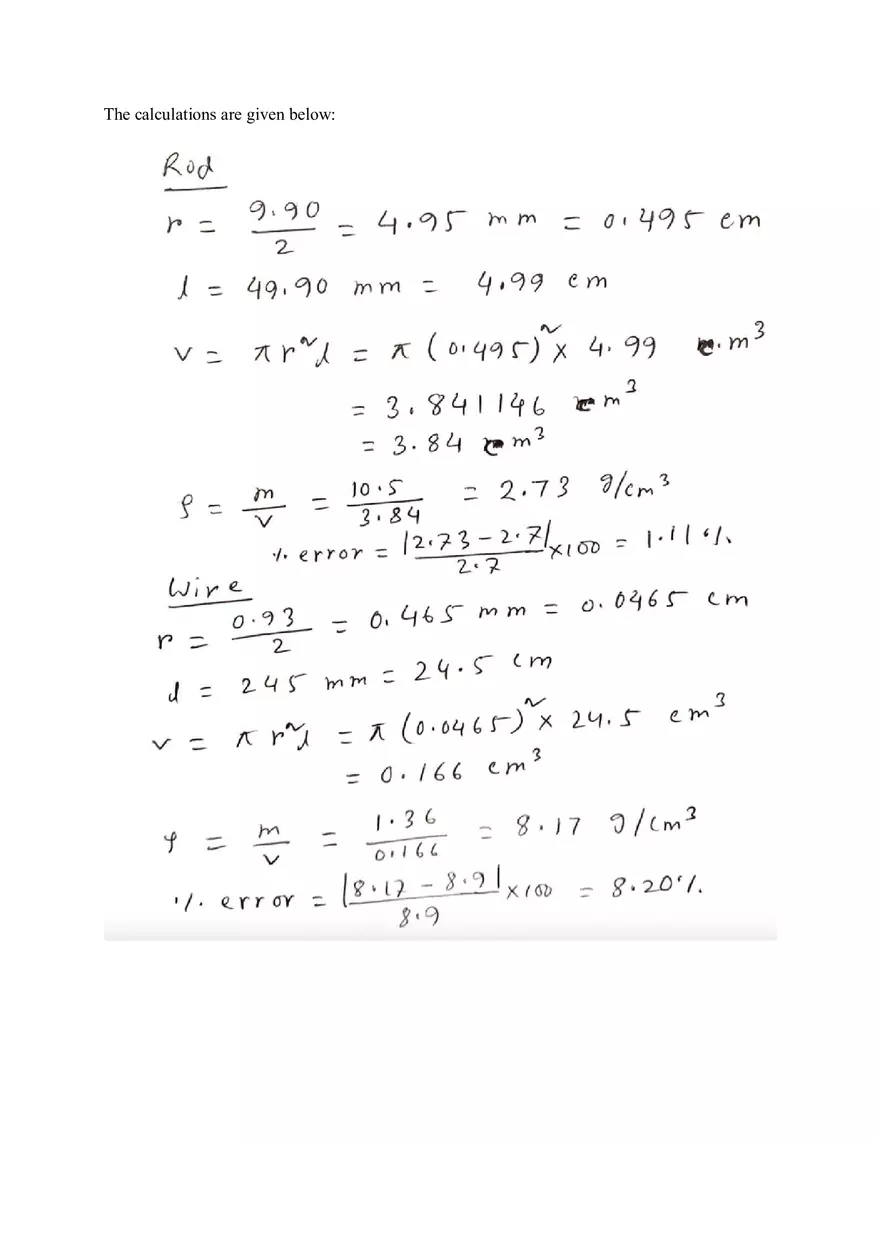 The calculations are given below:
Rod
r = 9.90/2 = 4.95 mm = 0.495 cm
l = 49.90 mm = 4.99 cm
v = πr²l = π (0.495)² × 4.99 c.m³
= 3.841146 cm³
= 3.84 cm³
ρ = m/v = 10.5/3.84 = 2.73 g/cm³
% error = |2.73 - 2.7|/2.7 ×100 = 1.11 %
Wire
r = 0.93/2 = 0.465 mm = 0.0465 cm
l = 245 mm = 24.5 cm
v = πr²l = π (0.0465)² × 24.5 cm³
= 0.166 cm³
ρ = m/v = 1.36/0.166 = 8.17 g/cm³
% error = |8.17 - 8.9|/8.9 ×100 = 8.20 %